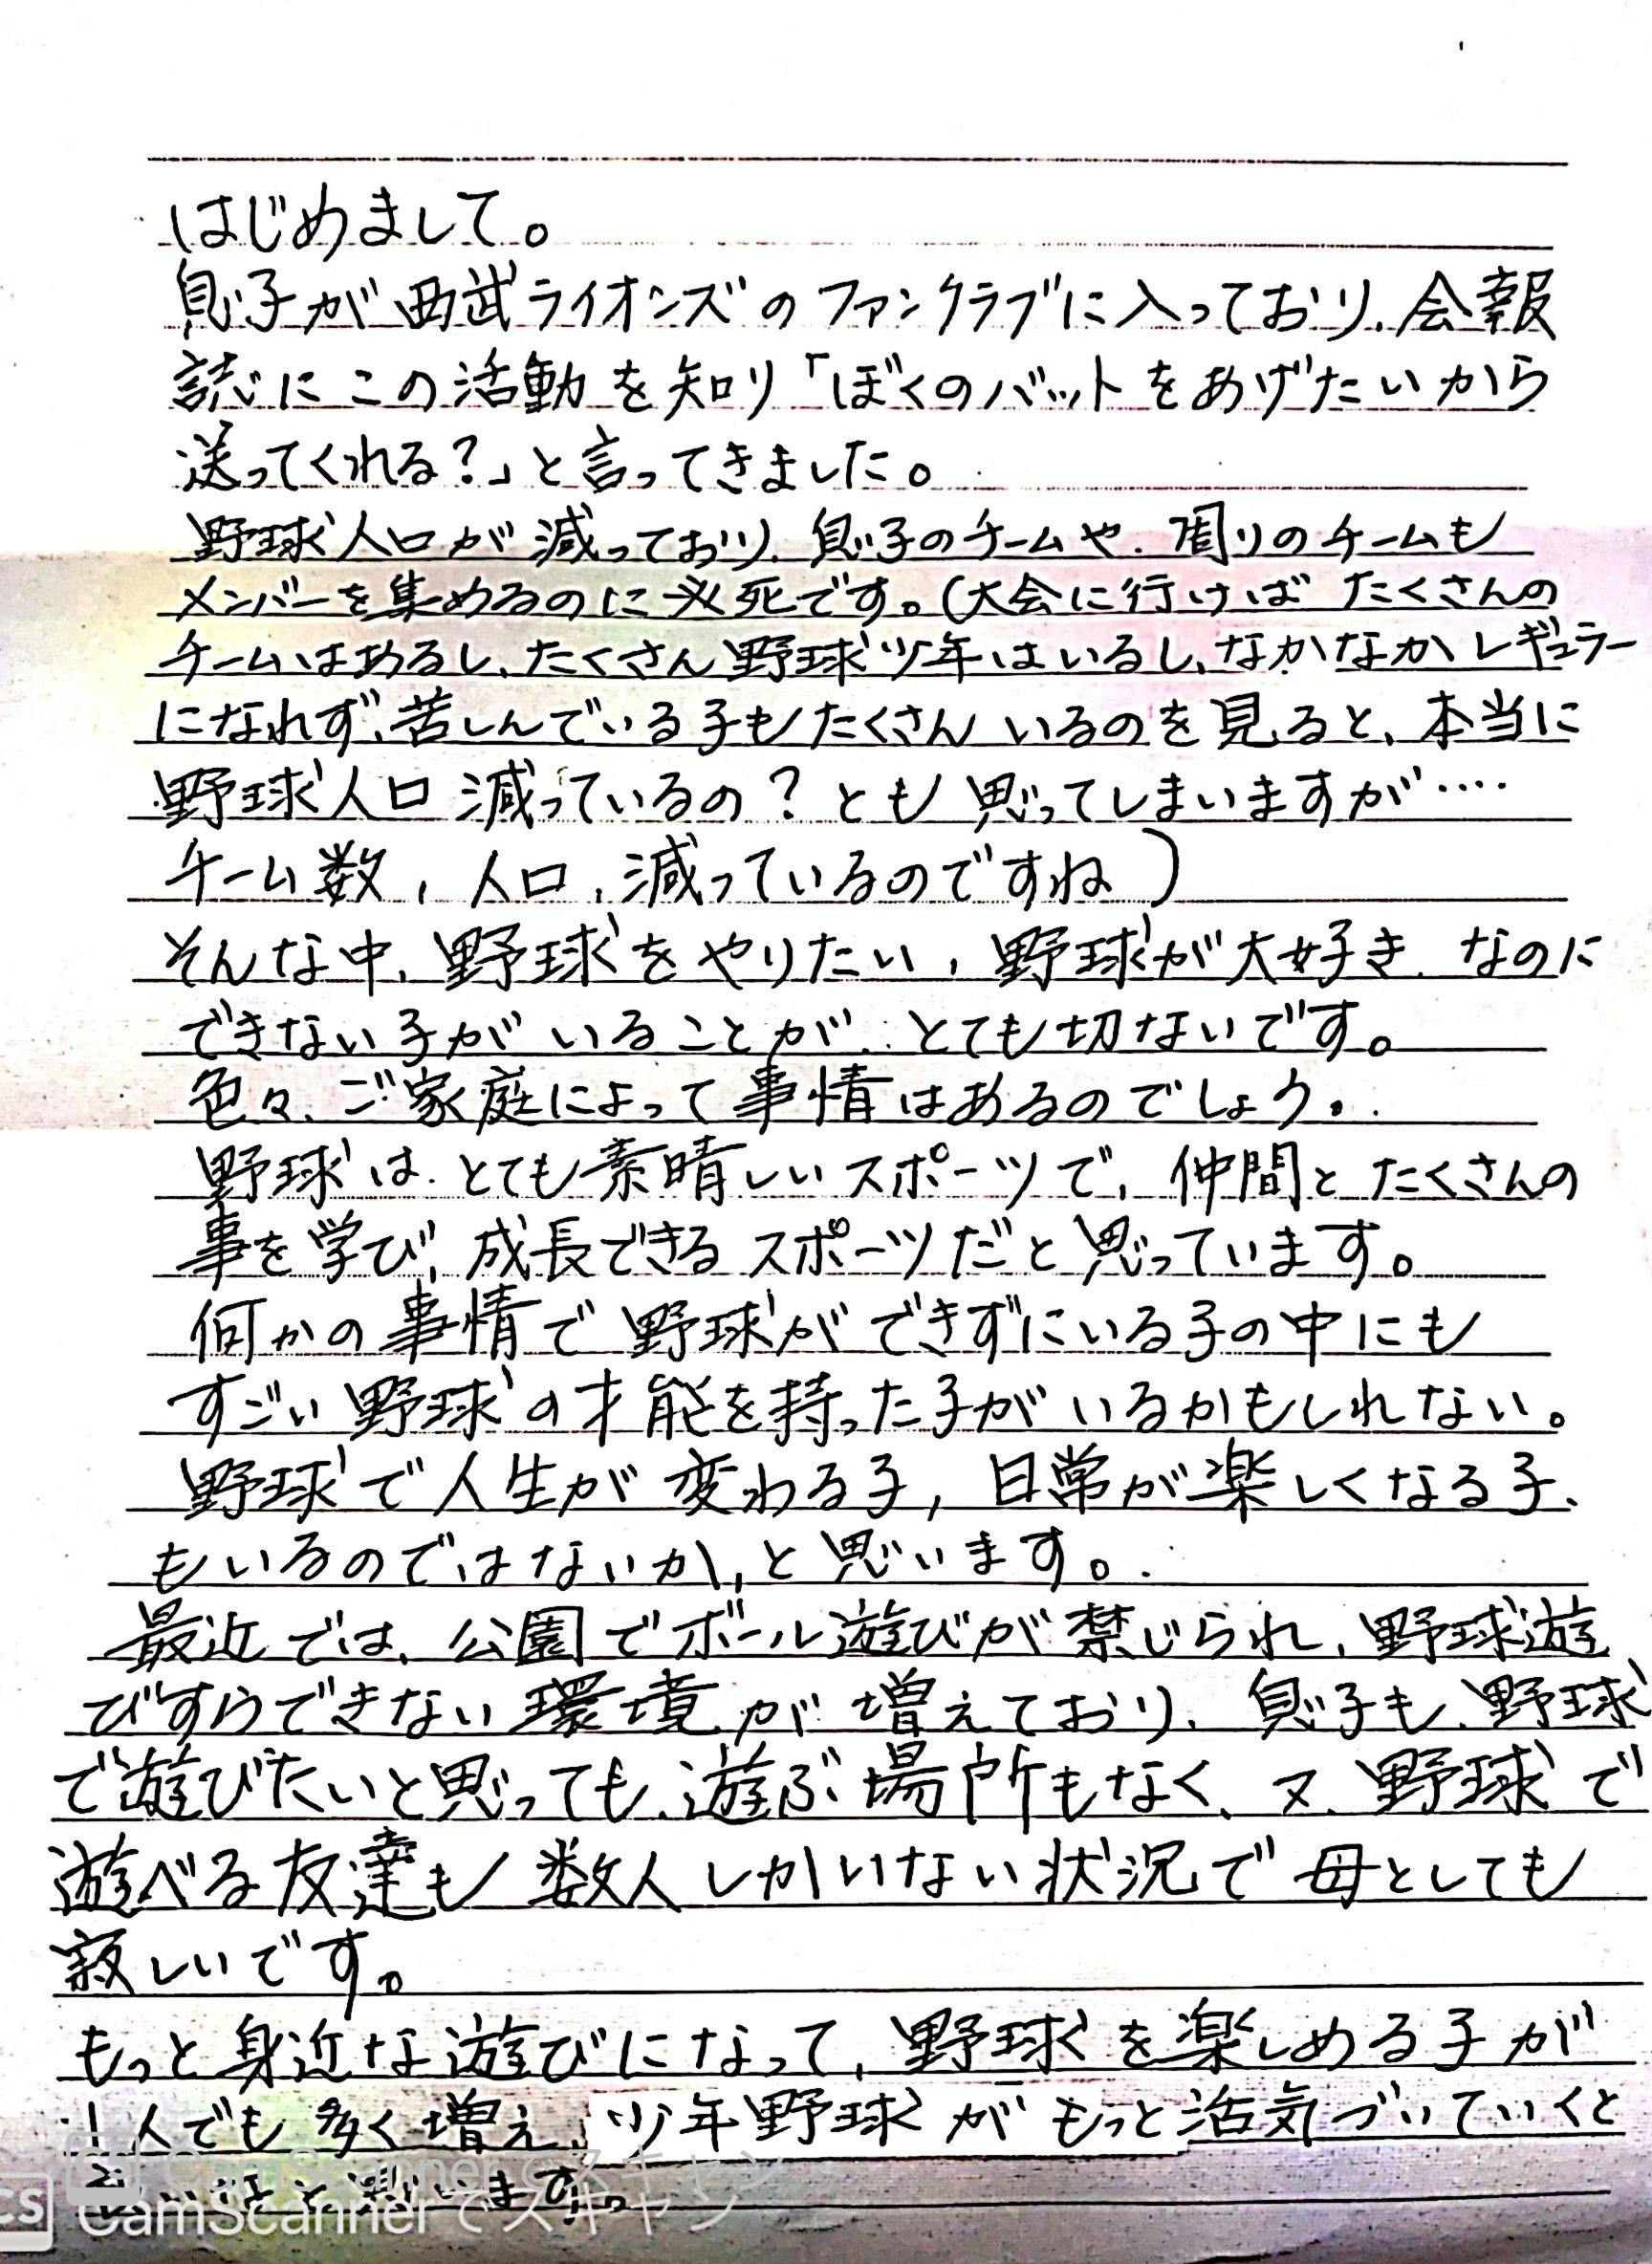 はじめまして。
息子が西武ライオンズのファンクラブに入っており、会報
誌にこの活動を知り「ぼくのバットをあげたいから
送ってくれる？」と言ってきました。
野球人口が減っており、息子のチームや、周りのチームも
メンバーを集めるのに必死です。（大会に行けばたくさんの
チームはあるし、たくさん野球少年はいるし、なかなかレギュラー
になれず、苦しんでいる子もたくさんいるのを見ると、本当に
野球人口減っているの？とも思ってしまいますが‥‥
チーム数、人口、減っているのですね）
そんな中、野球をやりたい、野球が大好き、なのに
できない子がいることが、とても切ないです。
色々、ご家庭によって事情はあるのでしょう。
野球は、とても素晴しいスポーツで、仲間とたくさんの
事を学び、成長できるスポーツだと思っています。
何かの事情で野球ができずにいる子の中にも
すごい野球の才能を持った子がいるかもしれない。
野球で人生が変わる子、日常が楽しくなる子、
もいるのではないか、と思います。
最近では、公園でボール遊びが禁じられ、野球遊
びすらできない環境が増えており、息子も、野球
で遊びたいと思っても、遊ぶ場所もなく、又、野球で
遊べる友達も数人しかいない状況で母としても
寂しいです。
もっと身近な遊びになって、野球を楽しめる子が
1人でも多く増え、少年野球がもっと活気づいていくと
いいなと思います。
CamScannerでスキャン
CS CamScannerでスキャン